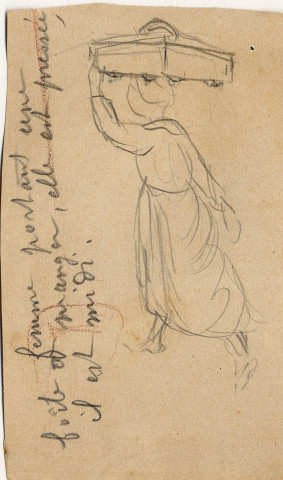 femme portant une
boîte à manger, elle est pressée,
il est midi.